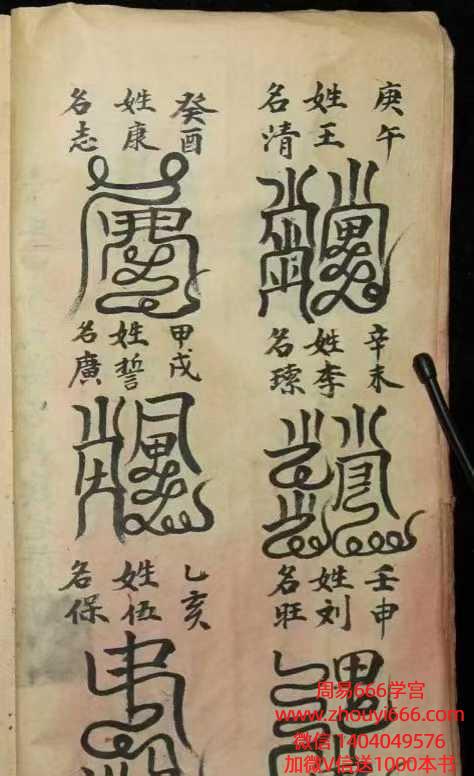 庚午
姓王
名清
辛未
姓李
名瑮
壬申
姓刘
名旺
癸酉
姓康
名志
甲戌
姓誓
名廣
乙亥
姓伍
名保
周易666学宫
www.zhouyi666.com
微信1404049576
加微V信送1000本书